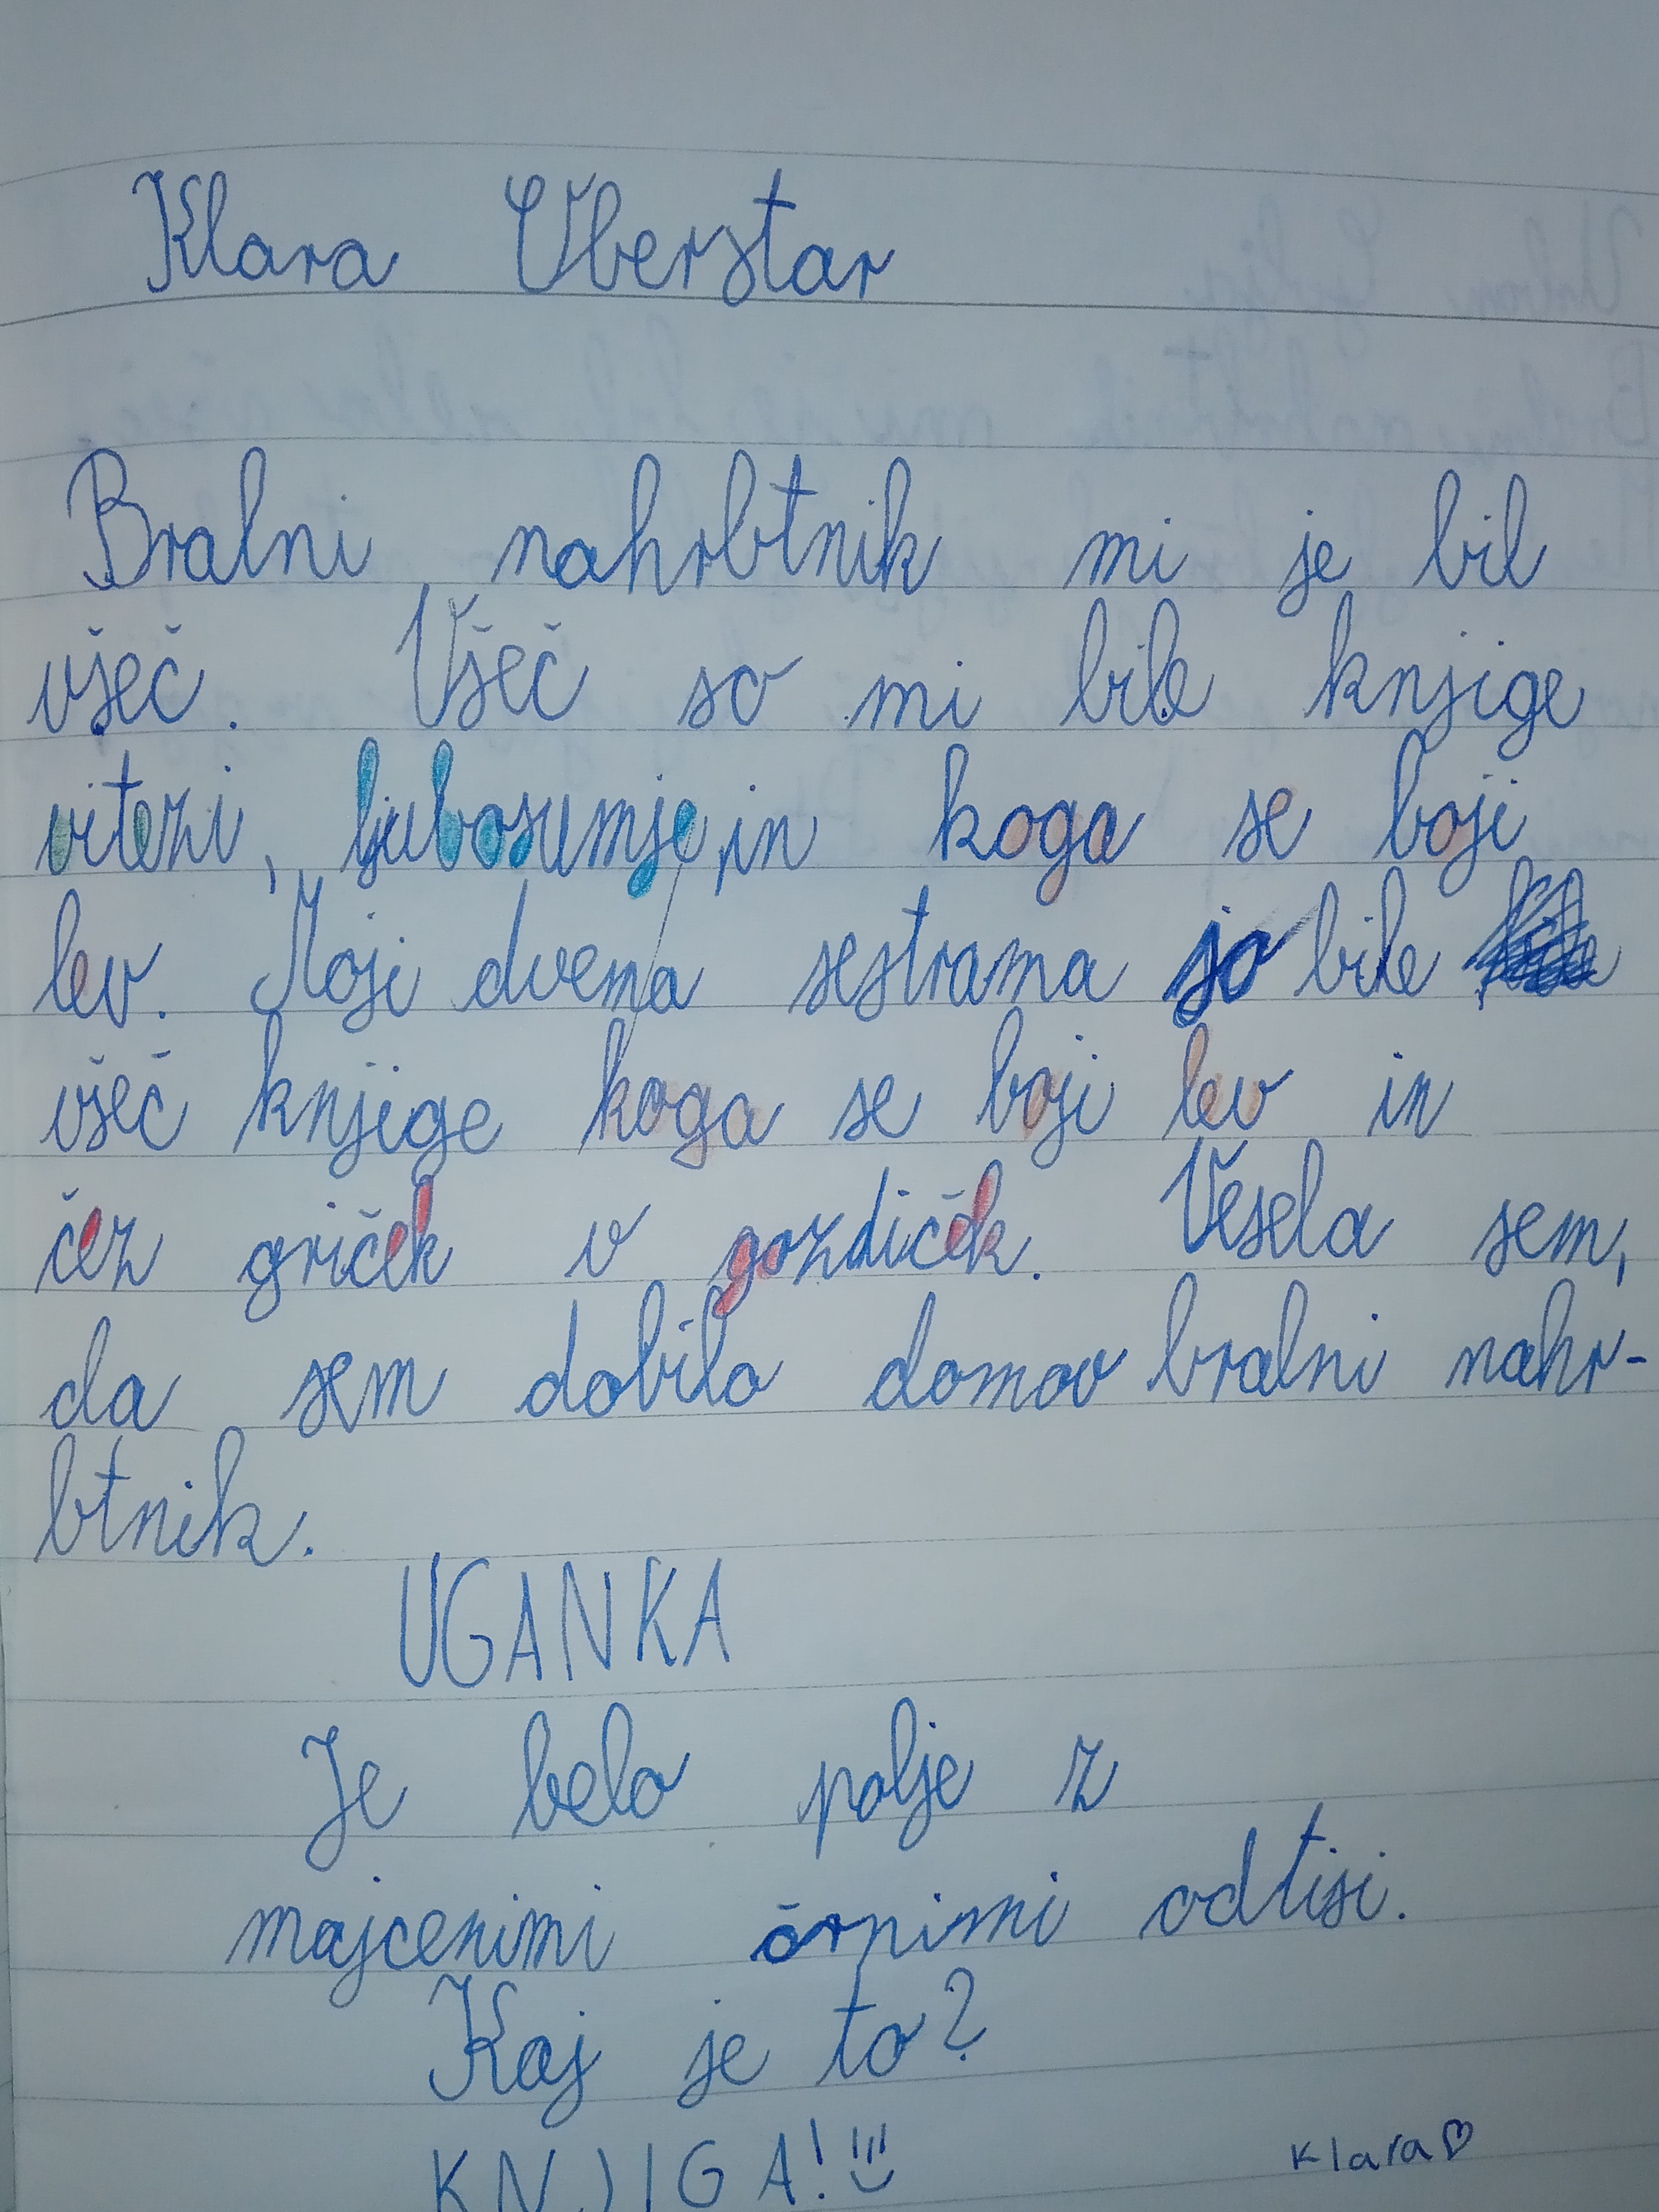 Klara Uberstar
Bralni nahrbtnik mi je bil
všeč. Všeč so mi bile knjige
vitezi, ljubosumje, in koga se boji
lev. Moji dvema sestrama so bile
všeč knjige koga se boji lev in
čez griček v gozdiček. Vesela sem,
da sem dobila domov bralni nahr-
btnik.
UGANKA
Je belo polje z
majcenimi črnimi odtisi.
Kaj je to?
KNJIGA!
Klara♡